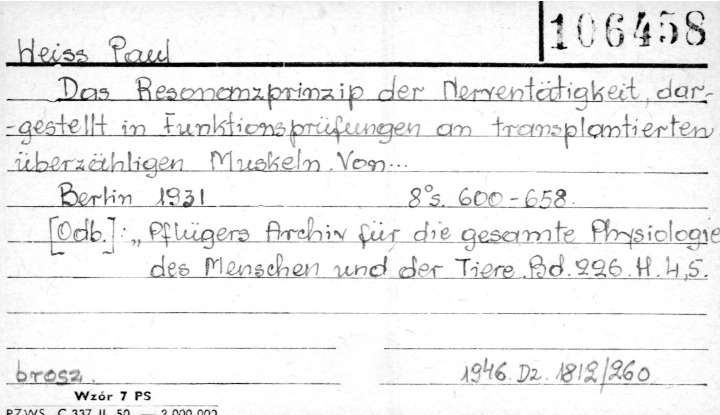 106458
Weiss Paul
Das Resonanzprinzip der Nerventätigkeit, dar-
-gestellt in Funktionsprüfungen an transplantierten
überzähligen Muskeln. Von...
Berlin 1931 8° s. 600-658.
[Odb.]: „Pflügers Archiv für die gesamte Physiologie
des Menschen und der Tiere. Bd. 226. H. 4,5.
brosz. 1946. Dz. 1812/260
Wzór 7 PS
PZWS. C 337 II. 50. — 2.000.000